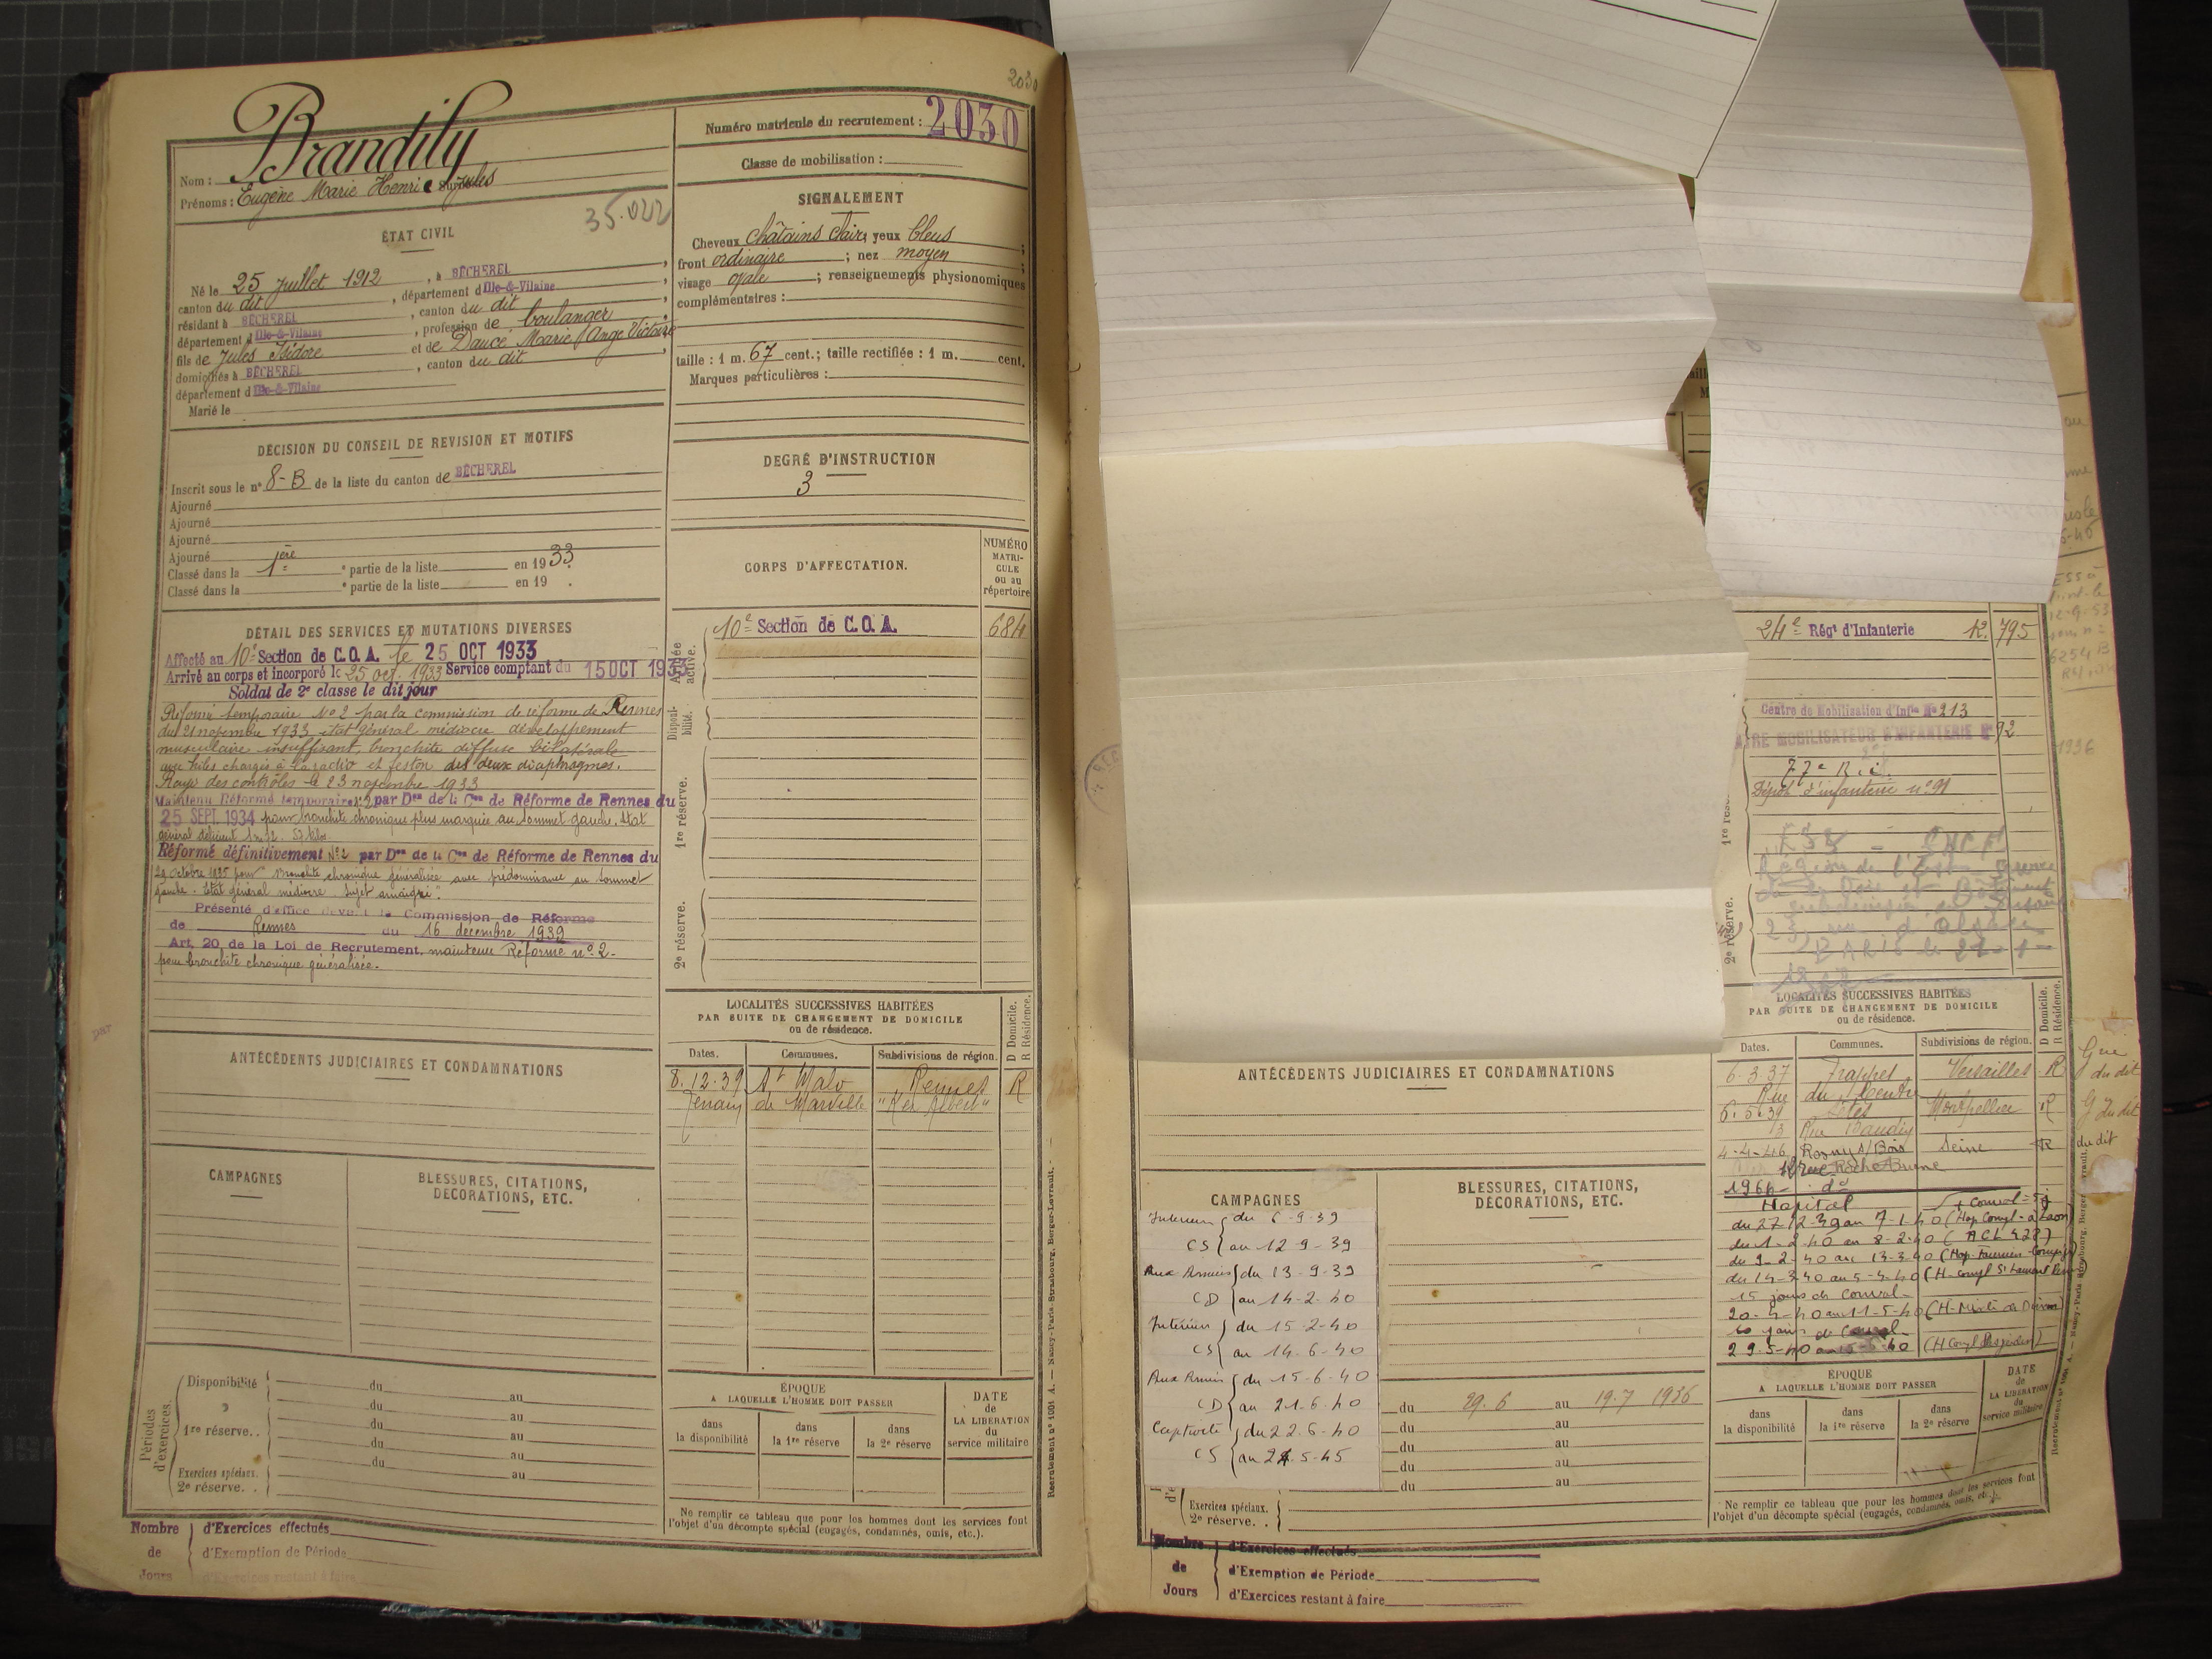 2030
Brandily
Nom :
Prénoms : Eugène Marie Henri Jules
35.022
ÉTAT CIVIL
Né le 25 Juillet 1912, à BÉCHEREL,
canton du dit, département d'Ille-&-Vilaine,
résidant à BÉCHEREL, canton du dit,
département d'Ille-&-Vilaine, profession de boulanger,
fils de Jules Isidore et de Daucé Marie Ange Victoire
domiciliés à BÉCHEREL, canton du dit,
département d'Ille-&-Vilaine
Marié le
DÉCISION DU CONSEIL DE REVISION ET MOTIFS
Inscrit sous le n° 8-B de la liste du canton de BÉCHEREL
Ajourné
Ajourné
Ajourné
Ajourné
Classé dans la 1ère partie de la liste en 1933.
Classé dans la e partie de la liste en 19 .
DÉTAIL DES SERVICES ET MUTATIONS DIVERSES
Affecté au 10e Section de C.O.A. le 25 OCT 1933
Arrivé au corps et incorporé le 25 oct. 1933 Service comptant du 15 OCT 1933
Soldat de 2e classe le dit jour
Réformé temporaire No 2 par la commission de réforme de Rennes
du 21 novembre 1933 état général médiocre développement
musculaire insuffisant, bronchite diffuse bilatérale
avec hiles chargés à la radio et feston des deux diaphragmes.
Rayé des contrôles le 23 novembre 1933
Maintenu Réformé temporaire n°2 par Don de la Con de Réforme de Rennes du
25 SEPT. 1934 pour bronchite chronique plus marquée au sommet gauche. Etat
général déficient
Réformé définitivement N°2 par Don de la Con de Réforme de Rennes du
29 octobre 1935 pour "Bronchite chronique généralisée avec prédominance au sommet
gauche. Etat général médiocre. Sujet amaigri".
Présenté d'office devant la Commission de Réforme
de Rennes du 16 décembre 1939
Art. 20 de la Loi de Recrutement. maintenu Réformé n° 2-
pour bronchite chronique généralisée.
ANTÉCÉDENTS JUDICIAIRES ET CONDAMNATIONS
CAMPAGNES
BLESSURES, CITATIONS,
DÉCORATIONS, ETC.
Périodes d'exercices.
Disponibilité du au
du au
1re réserve. . du au
du au
du au
Exercices spéciaux.
2e réserve. .
Nombre de Jours
d'Exercices effectués
d'Exemption de Période
d'Exercices restant à faire
Numéro matricule du recrutement : 2030
Classe de mobilisation :
SIGNALEMENT
Cheveux châtains clairs yeux bleus ;
front ordinaire ; nez moyen ;
visage ovale ; renseignements physionomiques
complémentaires :
taille : 1 m. 67 cent.; taille rectifiée : 1 m. cent.
Marques particulières :
DEGRÉ D'INSTRUCTION
3
CORPS D'AFFECTATION.
NUMÉRO
MATRI-
CULE
ou au
répertoire
Armée active.
10e Section de C.O.A. 684
Disponibilité.
1re réserve.
2e réserve.
LOCALITÉS SUCCESSIVES HABITÉES
PAR SUITE DE CHANGEMENT DE DOMICILE
ou de résidence.
D Domicile.
R Résidence.
Dates. Communes. Subdivisions de région.
8.12.39 St Malo Rennes R
ÉPOQUE
A LAQUELLE L'HOMME DOIT PASSER
dans la disponibilité
dans la 1re réserve
dans la 2e réserve
DATE
de
LA LIBÉRATION
du
service militaire
Ne remplir ce tableau que pour les hommes dont les services font
l'objet d'un décompte spécial (engagés, condamnés, omis, etc.).
Recrutement n° 1001 A. — Nancy-Paris-Strasbourg, Berger-Levrault.
ANTÉCÉDENTS JUDICIAIRES ET CONDAMNATIONS
CAMPAGNES
Intérieur du 6-9-39
CS au 12-9-39
Aux Armées du 13-9-39
CD au 14-2-40
Intérieur du 15-2-40
CS au 14-6-40
Aux Armées du 15-6-40
CD au 21-6-40
Captivité du 22-6-40
CS au 24-5-45
BLESSURES, CITATIONS,
DÉCORATIONS, ETC.
du 29.6 au 19.7 1936
du au
du au
du au
du au
Exercices spéciaux.
2e réserve. .
Nombre de Jours
d'Exercices effectués
d'Exemption de Période
d'Exercices restant à faire
24e Régt d'Infanterie 795
Centre de Mobilisation d'Infie No 213
MOBILISATEUR D'INFANTERIE No 92
77e R.i.
Dépôt d'infanterie n° 91
1936
Région de l'Est
PARIS le
2e réserve.
LOCALITÉS SUCCESSIVES HABITÉES
PAR SUITE DE CHANGEMENT DE DOMICILE
ou de résidence.
D Domicile.
R Résidence.
Dates. Communes. Subdivisions de région.
6.3.37 Trappes Versailles R
6.5.39 Sète Montpellier R
13 Rue Baudin
4-4-46 Rosny s/Bois Seine R du dit
1966 do
Hopital
du 27-12-39 au 7-1-40
du 1-2-40 au 8-2-40
du 9-2-40 au 13-3-40
du 14-3-40 au 5-4-40
15 jours de Conval-
20-4-40 au 11-5-40
10 jours de Conval-
29-5-40
ÉPOQUE
A LAQUELLE L'HOMME DOIT PASSER
dans la disponibilité
dans la 1re réserve
dans la 2e réserve
DATE
de
LA LIBÉRATION
du
service militaire
Ne remplir ce tableau que pour les hommes dont les services font
l'objet d'un décompte spécial (engagés, condamnés, omis, etc.).